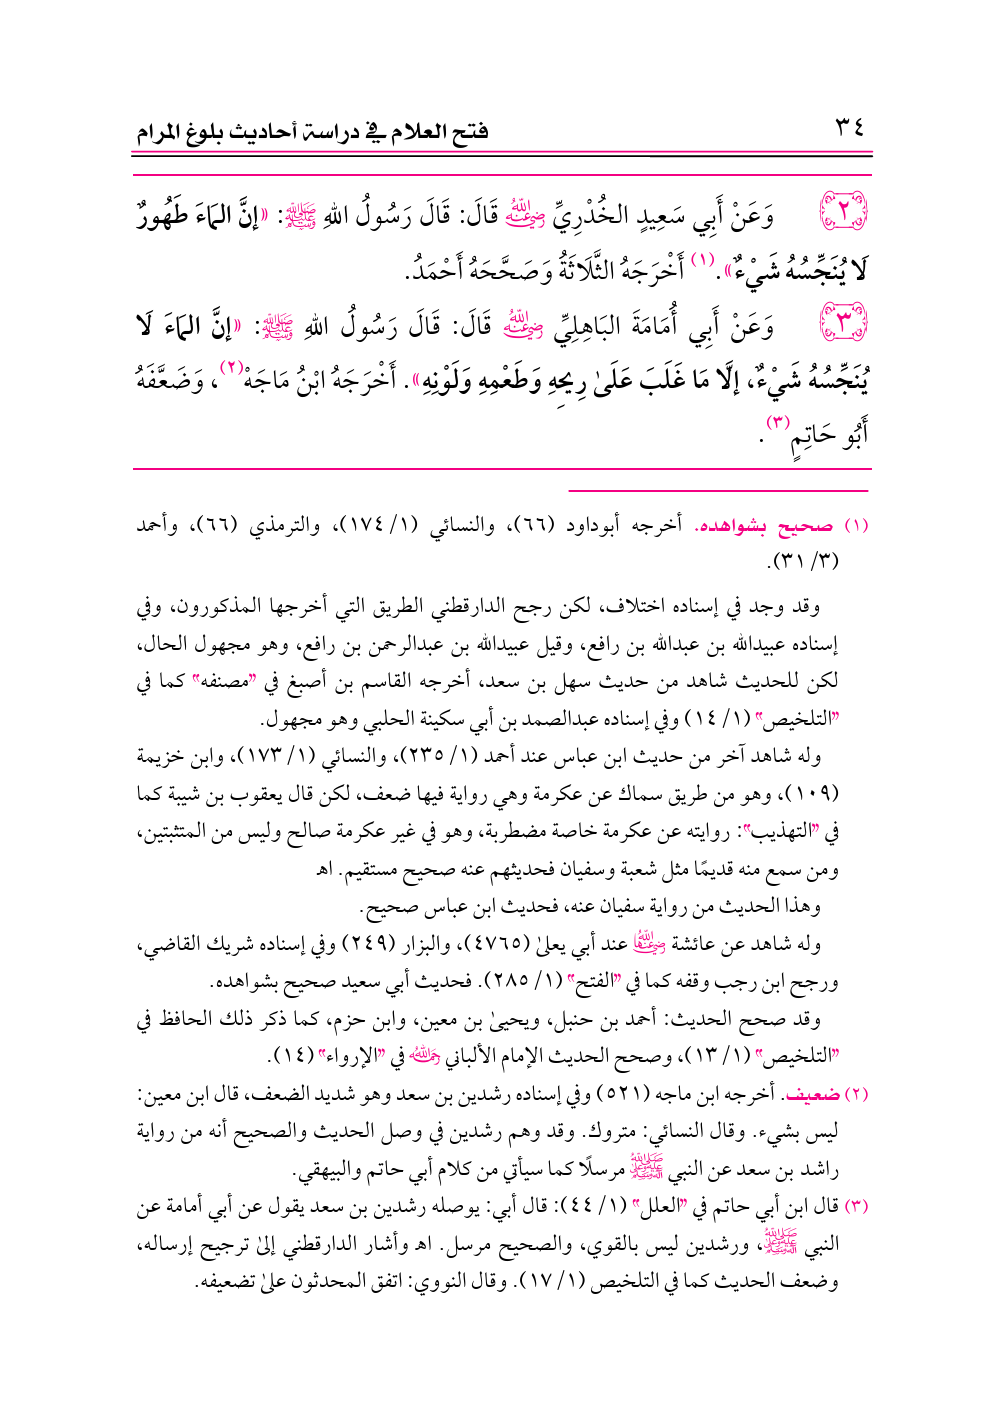 ٣٤
فتح العلام في دراسة أحاديث بلوغ المرام
٢ وَعَنْ أَبِي سَعِيدٍ الخُدْرِيِّ رضي الله عنه قَالَ: قَالَ رَسُولُ اللهِ ﷺ: «إنَّ الـمَاءَ طَهُورٌ
لَا يُنَجِّسُهُ شَيْءٌ».(١) أَخْرَجَهُ الثَّلَاثَةُ وَصَحَّحَهُ أَحْمَدُ.
٣ وَعَنْ أَبِي أُمَامَةَ البَاهِلِيِّ رضي الله عنه قَالَ: قَالَ رَسُولُ اللهِ ﷺ: «إنَّ الـمَاءَ لَا
يُنَجِّسُهُ شَيْءٌ، إلَّا مَا غَلَبَ عَلَىٰ رِيحِهِ وَطَعْمِهِ وَلَوْنِهِ». أَخْرَجَهُ ابْنُ مَاجَهْ(٢)، وَضَعَّفَهُ
أَبُو حَاتِمٍ(٣).
(١) صحيح بشواهده. أخرجه أبوداود (٦٦)، والنسائي (١/ ١٧٤)، والترمذي (٦٦)، وأحمد
(٣/ ٣١).
وقد وجد في إسناده اختلاف، لكن رجح الدارقطني الطريق التي أخرجها المذكورون، وفي
إسناده عبيدالله بن عبدالله بن رافع، وقيل عبيدالله بن عبدالرحمن بن رافع، وهو مجهول الحال،
لكن للحديث شاهد من حديث سهل بن سعد، أخرجه القاسم بن أصبغ في "مصنفه" كما في
"التلخيص" (١/ ١٤) وفي إسناده عبدالصمد بن أبي سكينة الحلبي وهو مجهول.
وله شاهد آخر من حديث ابن عباس عند أحمد (١/ ٢٣٥)، والنسائي (١/ ١٧٣)، وابن خزيمة
(١٠٩)، وهو من طريق سماك عن عكرمة وهي رواية فيها ضعف، لكن قال يعقوب بن شيبة كما
في "التهذيب": روايته عن عكرمة خاصة مضطربة، وهو في غير عكرمة صالح وليس من المتثبتين،
ومن سمع منه قديمًا مثل شعبة وسفيان فحديثهم عنه صحيح مستقيم. اهـ
وهذا الحديث من رواية سفيان عنه، فحديث ابن عباس صحيح.
وله شاهد عن عائشة رضي الله عنها عند أبي يعلىٰ (٤٧٦٥)، والبزار (٢٤٩) وفي إسناده شريك القاضي،
ورجح ابن رجب وقفه كما في "الفتح" (١/ ٢٨٥). فحديث أبي سعيد صحيح بشواهده.
وقد صحح الحديث: أحمد بن حنبل، ويحيىٰ بن معين، وابن حزم، كما ذكر ذلك الحافظ في
"التلخيص" (١/ ١٣)، وصحح الحديث الإمام الألباني رحمه الله في "الإرواء" (١٤).
(٢) ضعيف. أخرجه ابن ماجه (٥٢١) وفي إسناده رشدين بن سعد وهو شديد الضعف، قال ابن معين:
ليس بشيء. وقال النسائي: متروك. وقد وهم رشدين في وصل الحديث والصحيح أنه من رواية
راشد بن سعد عن النبي ﷺ مرسلًا كما سيأتي من كلام أبي حاتم والبيهقي.
(٣) قال ابن أبي حاتم في "العلل" (١/ ٤٤): قال أبي: يوصله رشدين بن سعد يقول عن أبي أمامة عن
النبي ﷺ، ورشدين ليس بالقوي، والصحيح مرسل. اهـ وأشار الدارقطني إلىٰ ترجيح إرساله،
وضعف الحديث كما في التلخيص (١/ ١٧). وقال النووي: اتفق المحدثون علىٰ تضعيفه.